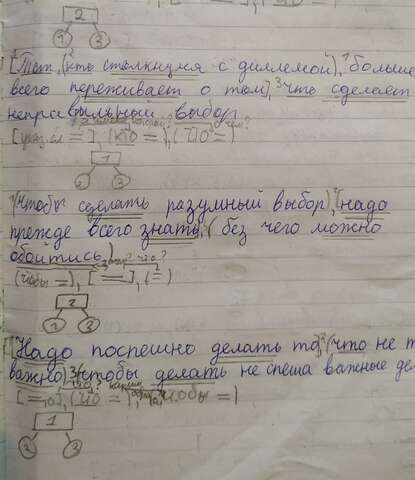 2
1 3
[Тот, (кто столкнулся с дилемой), больше
всего переживает о том], что сделает
неправильный выбор.
[указ.сл =], (кто =), (что =)
1
2 3
(Чтобы сделать разумный выбор), [надо
прежде всего знать], (без чего можно
обойтись)
(чтобы =), [=], (=)
2
1 3
[Надо поспешно делать то], (что не
важно), чтобы делать не спеша важные
[=, то], (что =), (чтобы =)
1
2 3